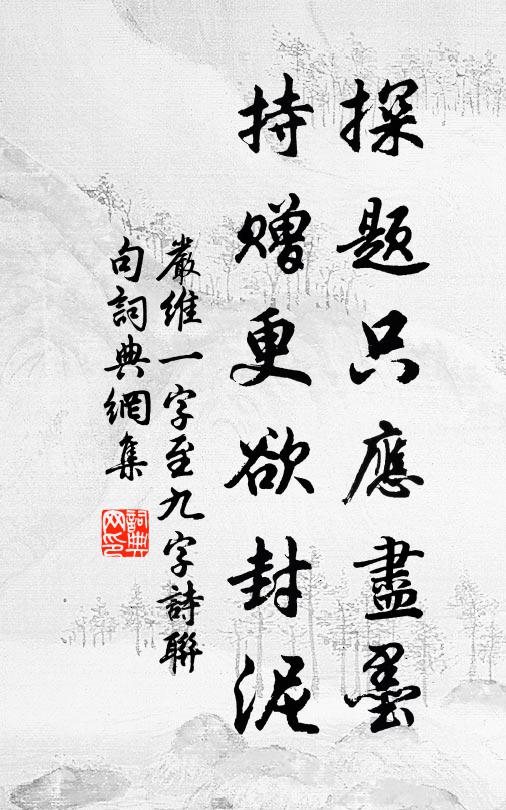 探題只應盡墨
持贈更欲封泥
嚴維一字至九字詩聯
句詞典網集
詞典
网印